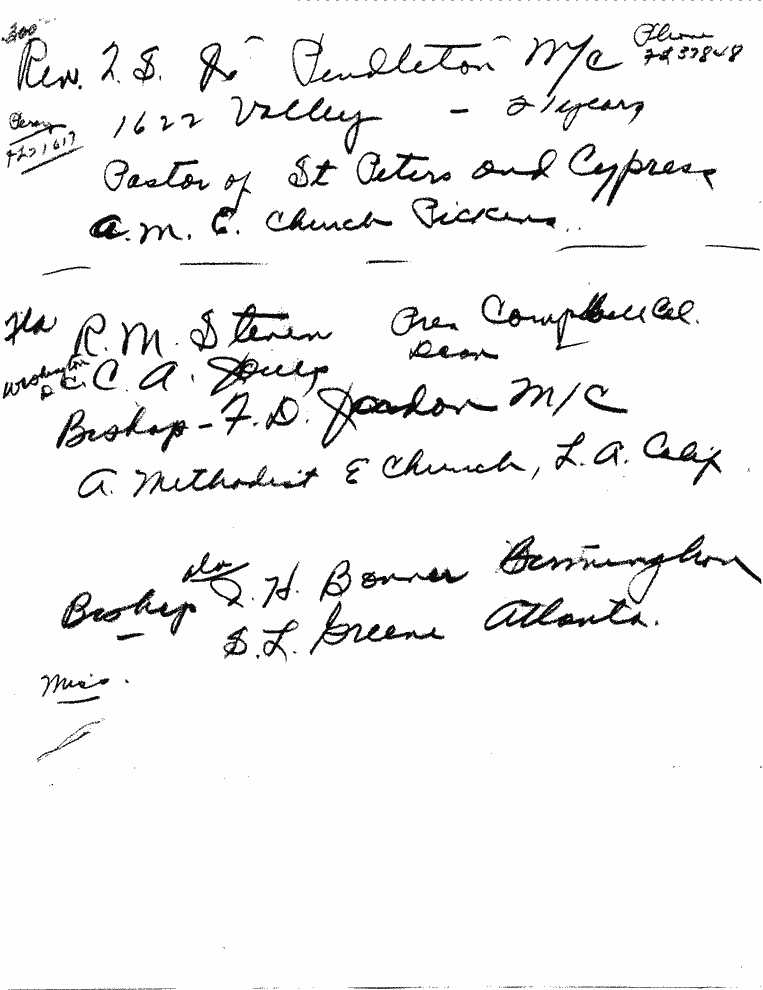 300
Rev. L. S. Jr Pendleton M/C
Phone
FL 37848
1622 Valley - 21 years
Perry
FL2 1617
Pastor of St Peters and Cypress
A. M. E. Church Pickens.
Fla R. M. Steven Pres Campbell Col.
Dean
Washington D C. C. A. Jones
Bishop - F. D. Jordon M/C
A. Methodist E Church, L. A. Calif
Bishop I. H. Bonner Birmingham
S. L. Greene Atlanta.
Miss.